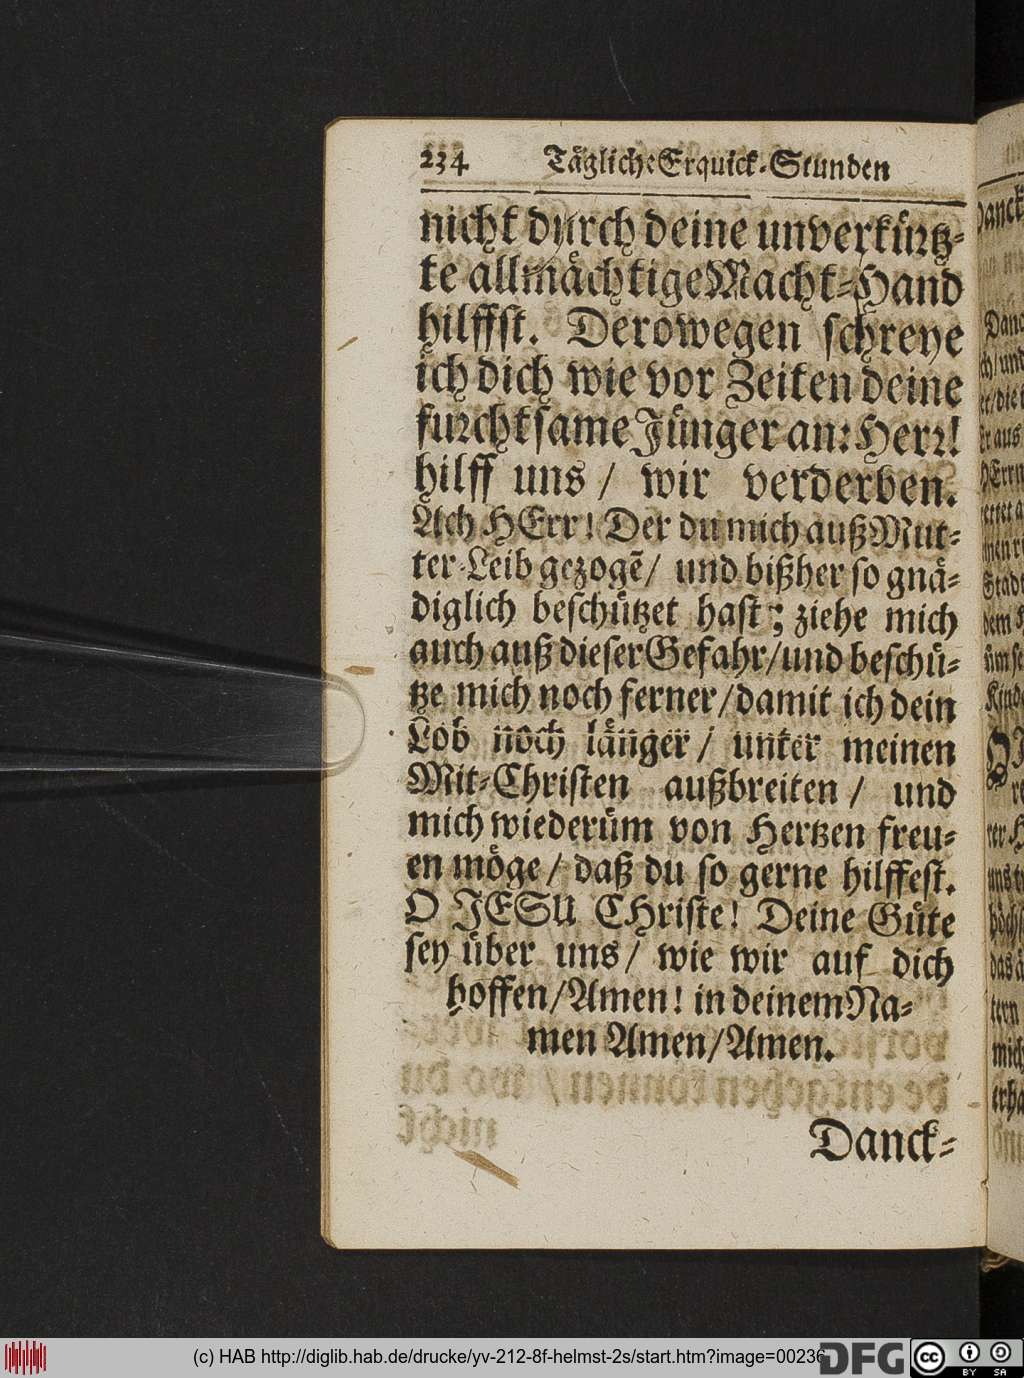 234 Tägliche Erquick-Stunden
nicht durch deine unverkürtz-
te allmächtige Macht-Hand
hilffst. Derowegen schreye
ich dich wie vor Zeiten deine
furchtsame Jünger an: Herr!
hilff uns / wir verderben.
Ach HErr! Der du mich auß Mut-
ter-Leib gezogẽ/ und bißher so gnä-
diglich beschützet hast; ziehe mich
auch auß dieser Gefahr/und beschü-
tze mich noch ferner/damit ich dein
Lob noch länger / unter meinen
Mit-Christen außbreiten / und
mich wiederüm von Hertzen freu-
en möge / daß du so gerne hilffest.
O JESU CHriste! Deine Güte
sey über uns / wie wir auf dich
hoffen/Amen! in deinem Na-
men Amen/Amen.
Danck-
(c) HAB http://diglib.hab.de/drucke/yv-212-8f-helmst-2s/start.htm?image=00236
DFG
cc BY SA